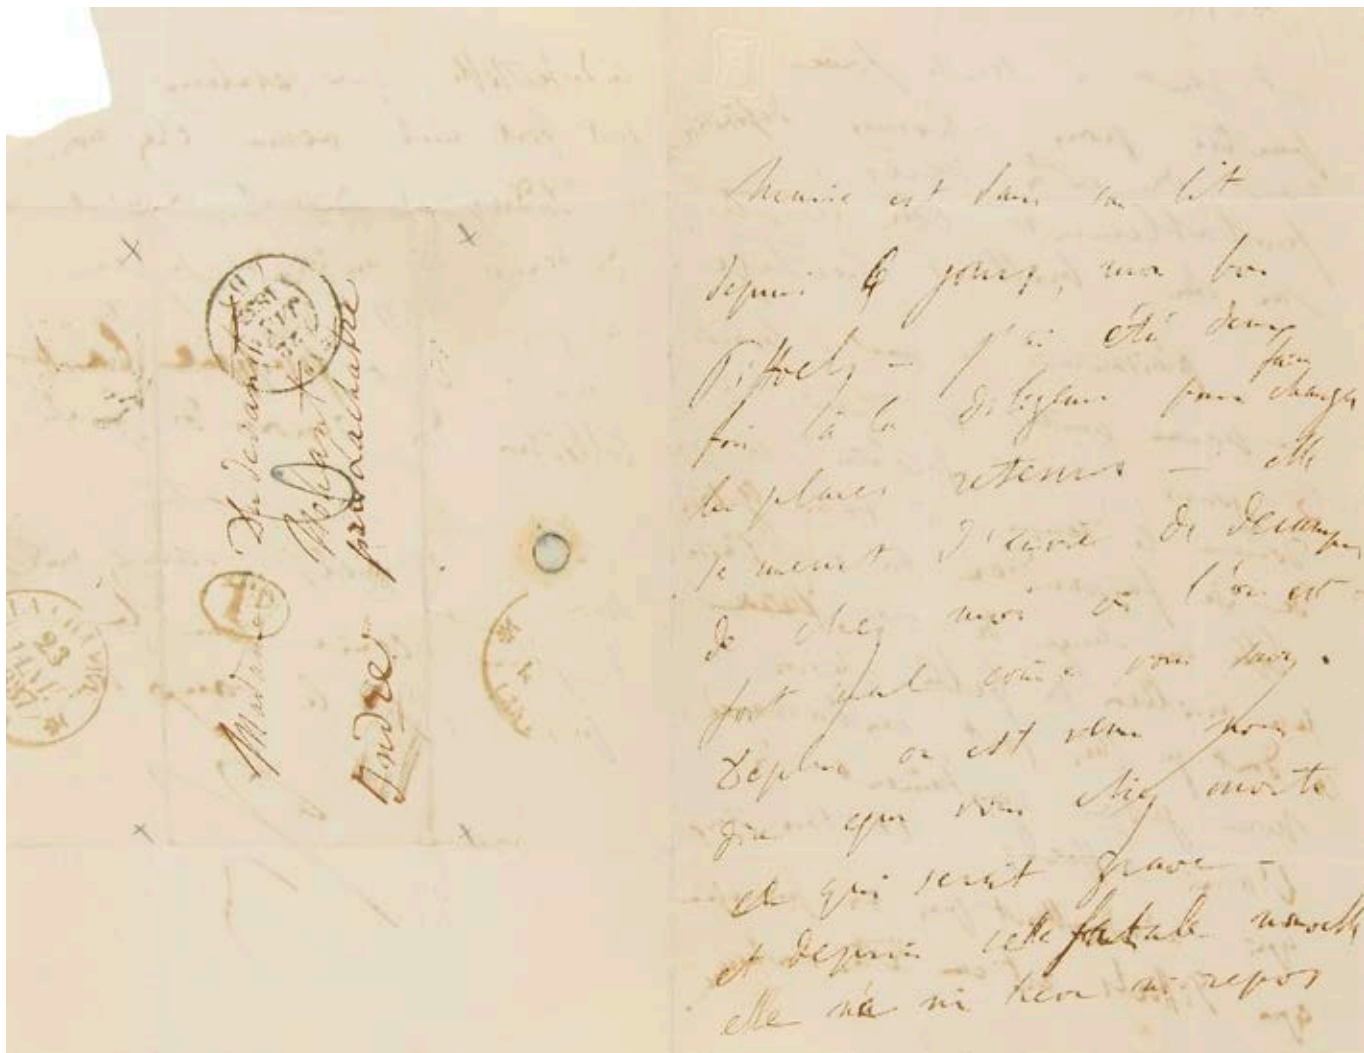 Madame Dudevant
Nohant
près Lachatre
Indre
23
est dans son lit
depuis 6 jours, mon bon
Piffoels - j'ai été deux
fois à la diligence pour faire changer
les places retenues - elle
se meurt d'envie de décamper
de chez moi où l'on est
fort mal comme vous savez.
Depuis on est venu nous
dire que vous étiez morte
ce qui serait grave -
et depuis cette fatale nouvelle
elle n'a ni trève ni repos